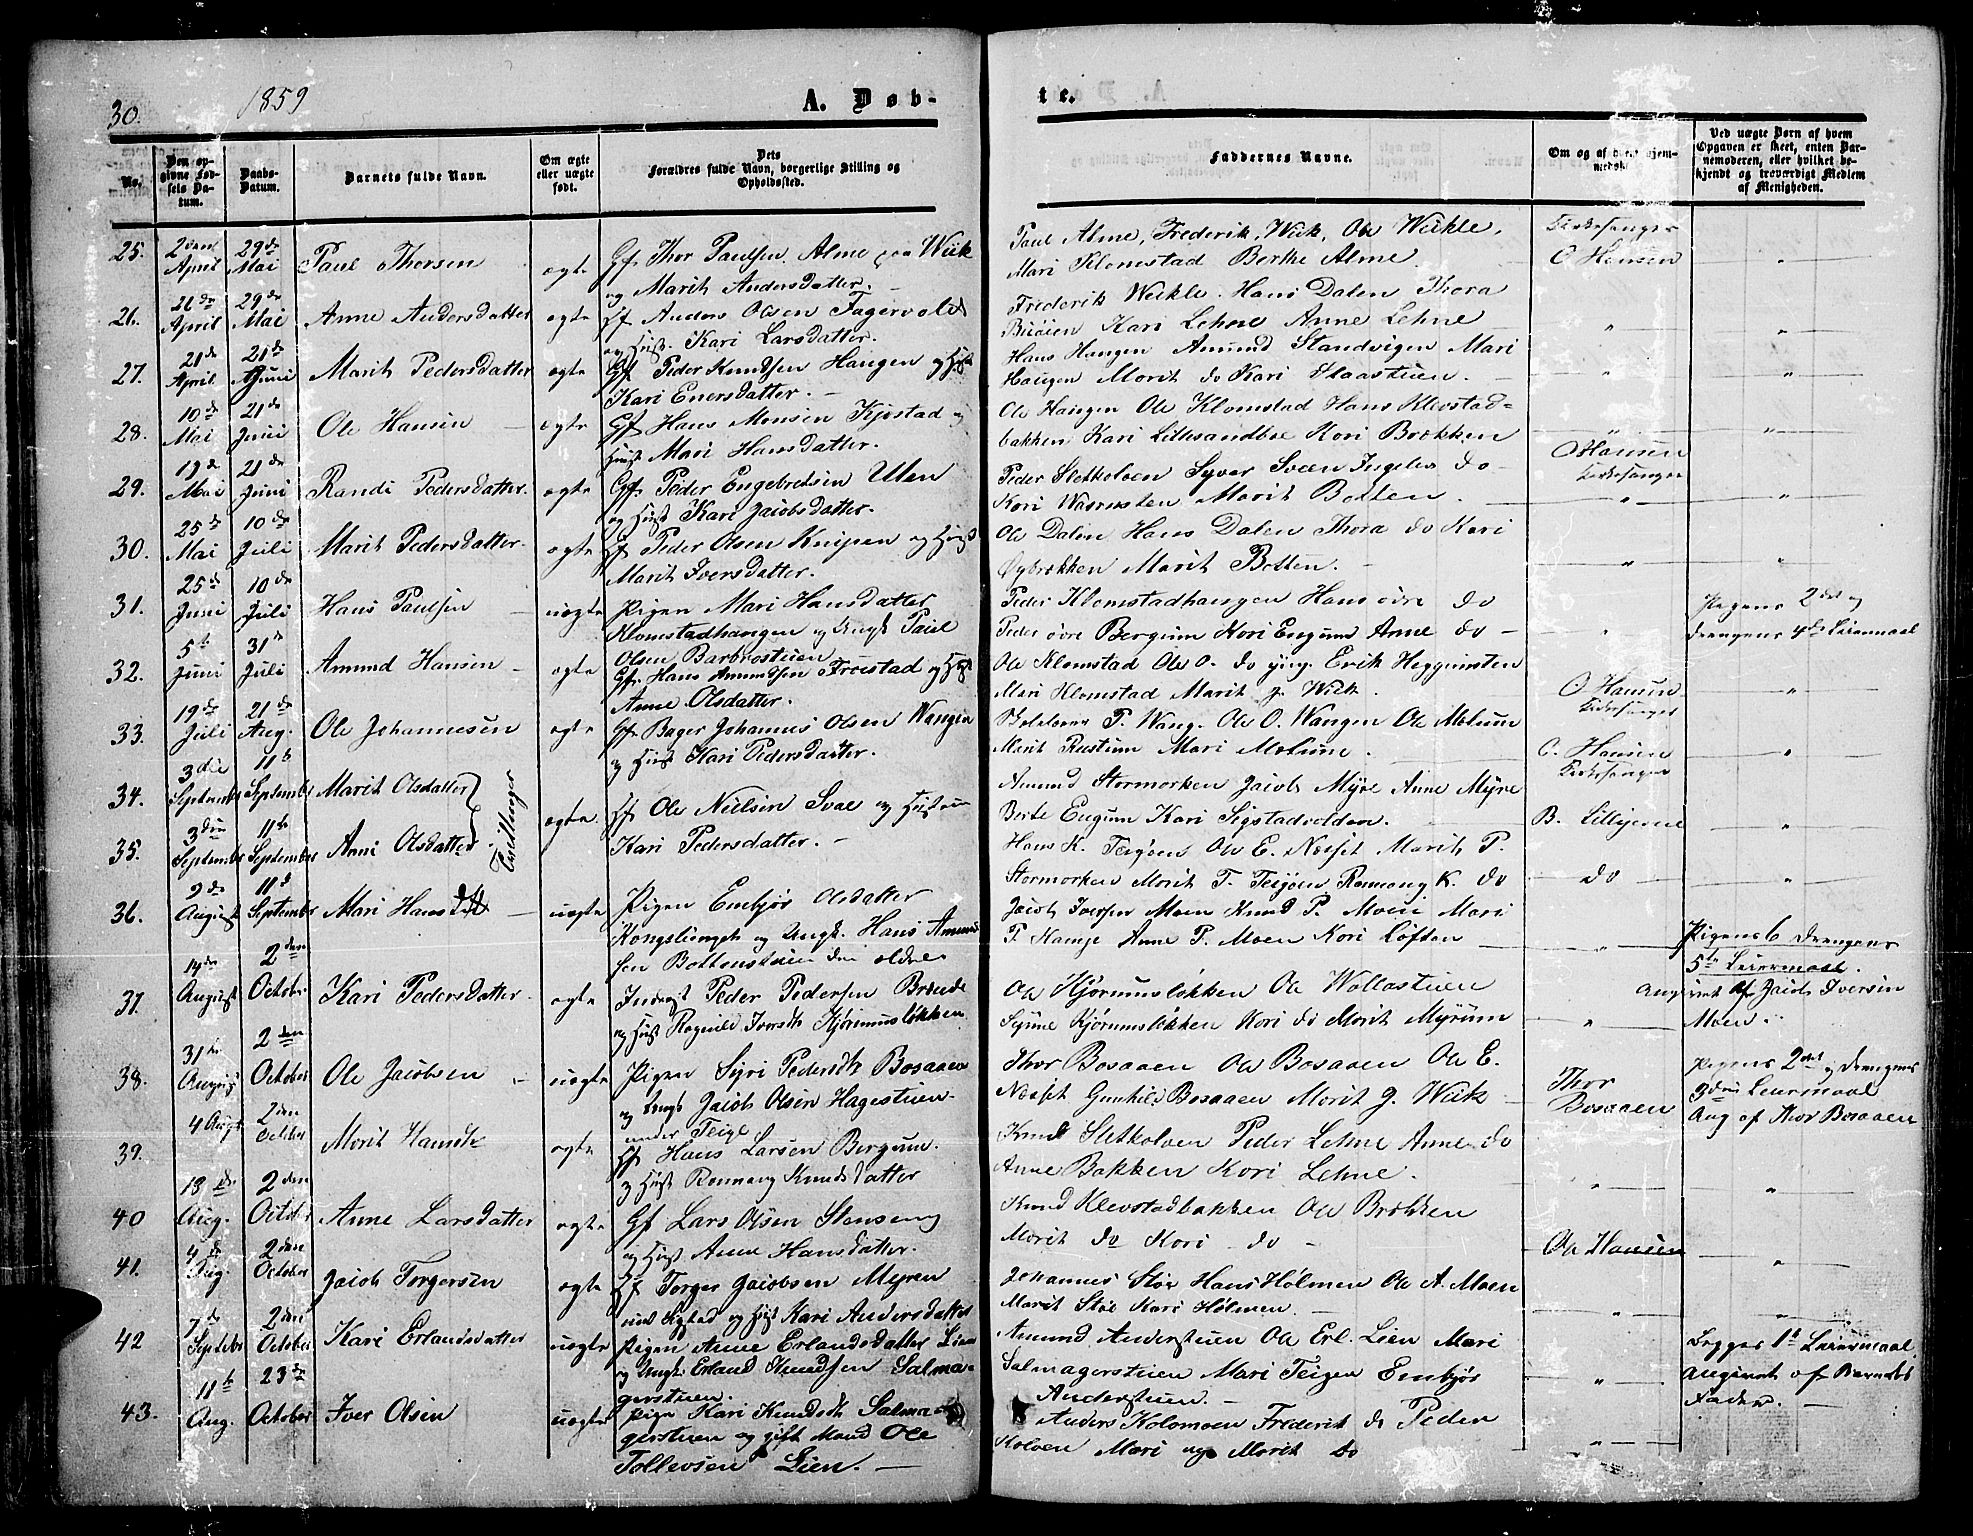 30.
1859
A. Døb-
te.
No.
Den opgivne Fødsels Datum.
Daabs-Datum.
Barnets fulde Navn.
Om ægte eller uægte født.
Dets Forældres fulde Navn, borgerlige Stilling og Opholdssted.
Faddernes Navne.
Om og af hvem hjemmedøbt
Ved uægte Børn af hvem Opgaven er skeet, enten Barnemoderen, eller hvilket bekjendt og troværdigt Medlem af Menigheden.
25. 2den April 29de Mai Paul Thorsen ægte Gf. Thor Paulsen Alme paa Wiik
og Marit Andersdatter.
Paul Alme, Frederik Wiik, Ole Weikle,
Mari Klomstad Berthe Alme.
Kirkesanger
O Hansen
26. 26de April 29de Mai Anne Andersdatter ægte Hf Anders Olsen Fagervold
og Hust. Kari Larsdatter.
Frederik Weikle. Hans Dalen Thora
Kari Lehne Anne Lehne
27. 21de April 21de Juni Marit Pedersdatter ægte Gf Peder Knudsen Haugen og Hust
Kari Enersdatter.
Hans Haugen Amund Standvigen Mari
Haugen Marit do Kari
28. 10de Mai 21de Juni Ole Hansen ægte Gf Hans Monsen Kjøstad og
Hust Mari Hansdatter.
Ole Haugen Ole Klomstad Hans Klevstad-
bakken Kari Kari Brækken
29. 19de Mai 21de Juni Randi Pedersdatter. ægte Gf. Peder Engebretsen Ulen
og Hust Kari Jacobsdatter.
Peder Sletkolven Syver Svæen Ingelev do
Kari Marit Botten.
O Hansen
Kirkesanger
30. 25de Mai 10de Juli Marit Pedersdatter. ægte Hf Peder Olsen Knipen og Hust
Marit Iversdatter.
Ole Dalen Hans Dalen Thora do Kari
Øybrækken Marit Botten.
31. 25de Juni 10de Juli Hans Paulsen uægte Pigen Mari Hansdatter
Klomstadhaugen og Ungk Paul
Olsen Barbrostuen
Peder Klomstadhaugen Hans øvre do
Peder øvre Bergum Kari Engum Anne do
Pigens 2det og
Drengens 4de Leiermaal
32. 5te Juni 31te Juli Amund Hansen ægte Gf. Hans Amundsen Froistad og Hust
Anne Olsdatter.
Ole Klomstad Ole O. do yng. Erik Heggeristen
Mari Klomstad Marit g. Wiik.
O Hansen
Kirkesanger
33. 19de Juli 21de Aug. Ole Johannesen ægte Gf. Bager Johannes Olsen Wangen
og Hust Kari Pedersdatter.
P. Wang. Ole O. Wangen Ole Melum
Marit Rustum Mari Melum.
O. Hansen
Kirkesanger
34. 3die September 11te September Marit Olsdatter
Tvillinger
ægte. Hf Ole Nielsen Svae og Hustru
Kari Pedersdatter.
Amund Stormorken Jacob Myre Anne Myre
Berte Engum Kari Sigstadvolden.
B. Lillijerne
35. 3die September 11te September Anne Olsdatter
Hans K. Teigen Ole E. Næset Marit P.
Stormorken Marit T. Teigen Rønnaug K. do
do
36. 2de August 11te September Mari Hansdatt uægte Pigen Embjør Olsdatter
Kongsliengets og Ungk. Hans Amund-
sen Bottenstuen den ældre
Jacob Iversen Moen Knud P. Moen Mari
P. Kamje Anne P. Moen Kari Loften
Pigens 6 Drengens
5te Leiermaal.
Angivet af Jacob Iversen
Moen.
37. 14de August 2den October Kari Pedersdatter. ægte Inderst Peder Pedersen Brænde
og Hust Ragnild Iversdt Kjørumsløkken
Ole Kjørumsløkken Ole Wollastuen
Synne Kjørumsløkken Kari do Marit Myrum
38. 31te August 2den October Ole Jacobsen uægte Pigen Syri Pedersdt Bosaaen
og Ungk Jacob Olsen Hagestuen
under Teige
Thor Bosaaen Ole Bosaaen Ole E.
Næset Gunhild Bosaaen Marit g. Wiik
Thor
Bosaaen
Pigens 2det og Drengens
3die Leiermaal
Ang af Thor Bosaaen
39. 4 Aug 2den October Marit Hansdt ægte Hf Hans Larsen Bergum.
og Hust Rønnaug Knudsdatter
Knud Sletkolven Peder Lehne Anne do
Anne Bakken Kari Lehne.
40 13de Aug. 2den October Anne Larsdatter ægte Gf Lars Olsen Stenseng
og Hust Anne Hansdatter.
Knud Klevstadbakken Ole Brækken
Marit do Kari do
Ole Hansen
41. 4de Aug. 2den October Jacob Torgersen ægte Hf Torger Jacobsen Myren
und Sigstad og Hust Kari Andersdatter
Johannes Støe Hans Holmen Ole A. Moen
Marit Støe Kari Holmen.
42 7de Septebr 2den October Kari Erlandsdatter uægte Pigen Anne Erlandsdatter Lien
og Ungk. Erland Knudsen Salma-
gerstuen.
Amund Anderstuen Ole Erl. Lien Mari
Salmagerstuen Mari Teigen Embjør
Anderstuen.
Begges 1te Leiermaal
Angivet af Barnets
Fader.
43. 11te Aug. 23de October Iver Olsen uægte Pige Kari Knudsdt Salma-
gerstuen og gift Mand Ole
Tollevsen Lien.
Anders Kolomoen Frederik do Peder
Kolven Mari og Marit do